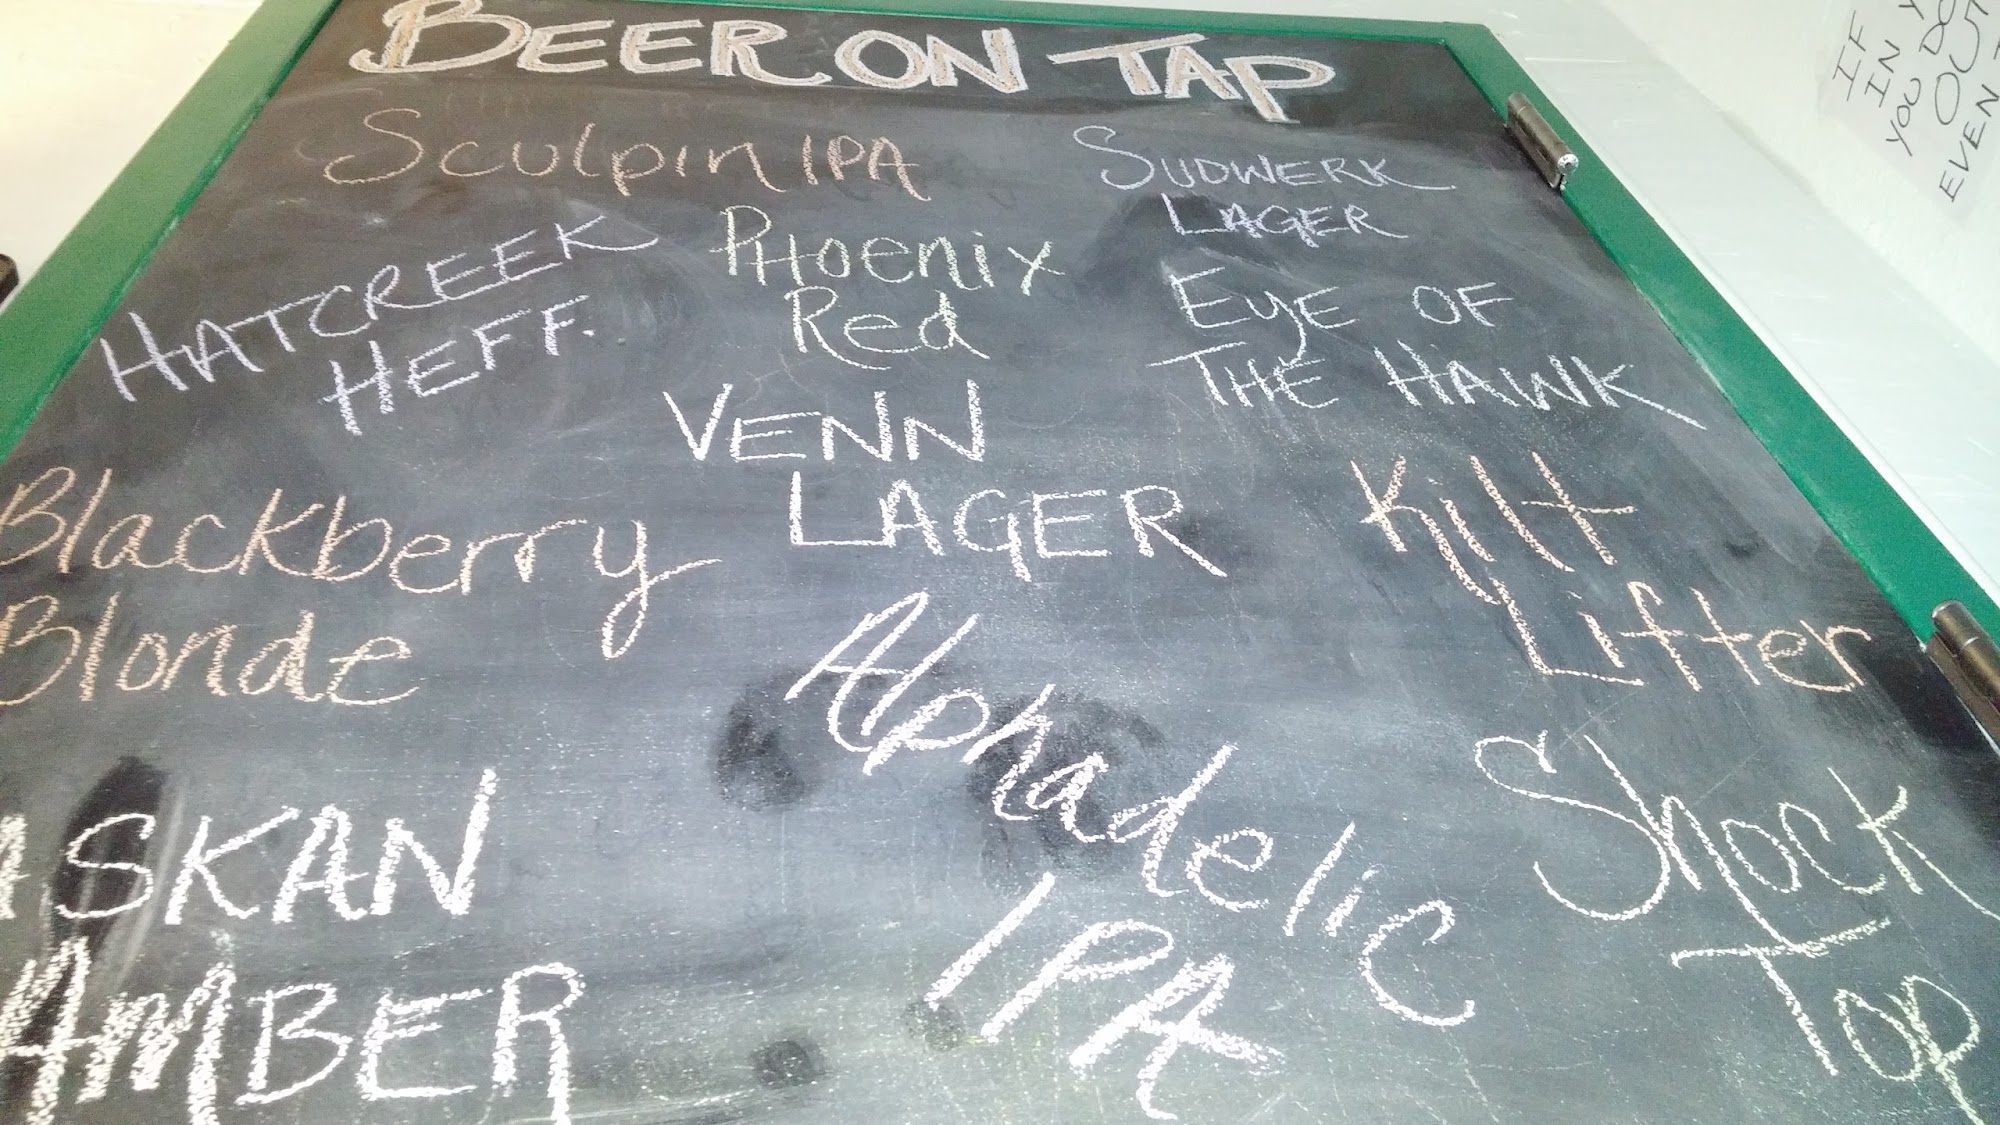 BEER ON TAP
Sculpin IPA
SUDWERK
LAGER
HATCREEK
HEFF.
PHoenix
Red
EyE OF
THE HAWK
VENN
LAGER
Blackberry
Blonde
Kilt
Lifter
Alphadelic
IPA
Shock
Top
ASKAN
AMBER
IF
IN
YOU DO
EVEN